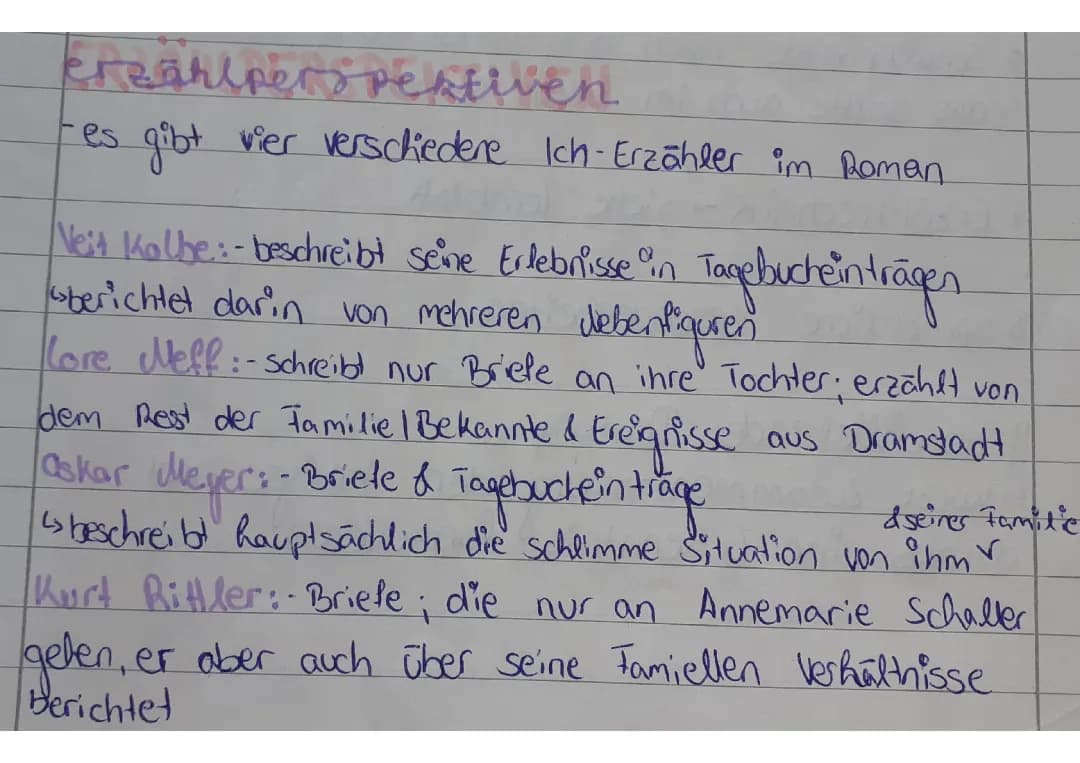 erzählperspektiven
- es gibt vier verschiedene Ich-Erzähler im Roman
Veit Kolbe: - beschreibt seine Erlebnisse in Tagebucheinträgen
↳ berichtet darin von mehreren Nebenfiguren
Lore Neff: - schreibt nur Briefe an ihre Tochter; erzählt von
dem Rest der Familie / Bekannte & Ereignisse aus Dramstadt
Oskar Meyer: - Briefe & Tagebucheinträge
& seiner Familie
↳ beschreibt hauptsächlich die schlimme Situation von ihm
Kurt Rittler: - Briefe; die nur an Annemarie Schaller
gehen, er aber auch über seine Famiellen Verhältnisse
berichtet